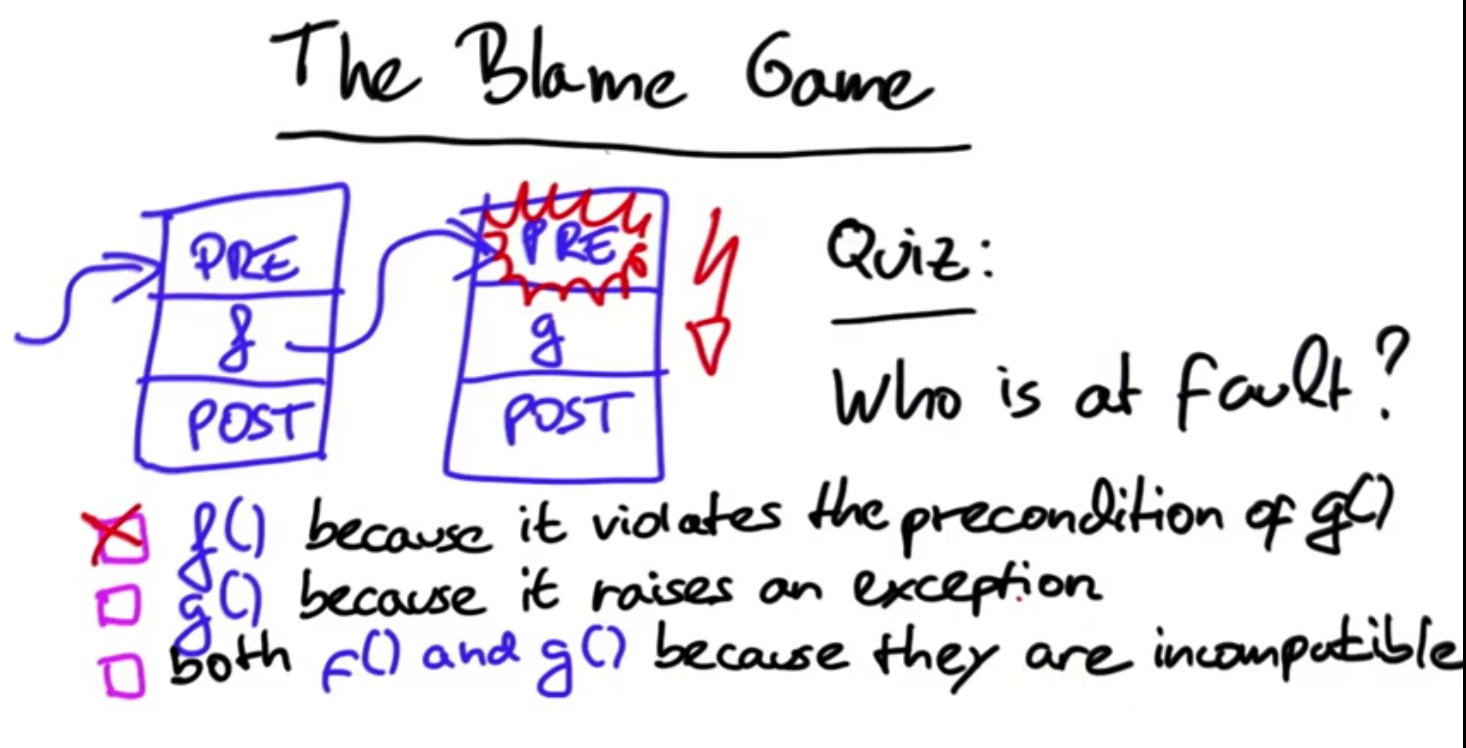 The Blame Game
PRE
f
POST
PRE
g
POST
Quiz:
Who is at fault?
f() because it violates the precondition of g()
g() because it raises an exception
both f() and g() because they are incompatible